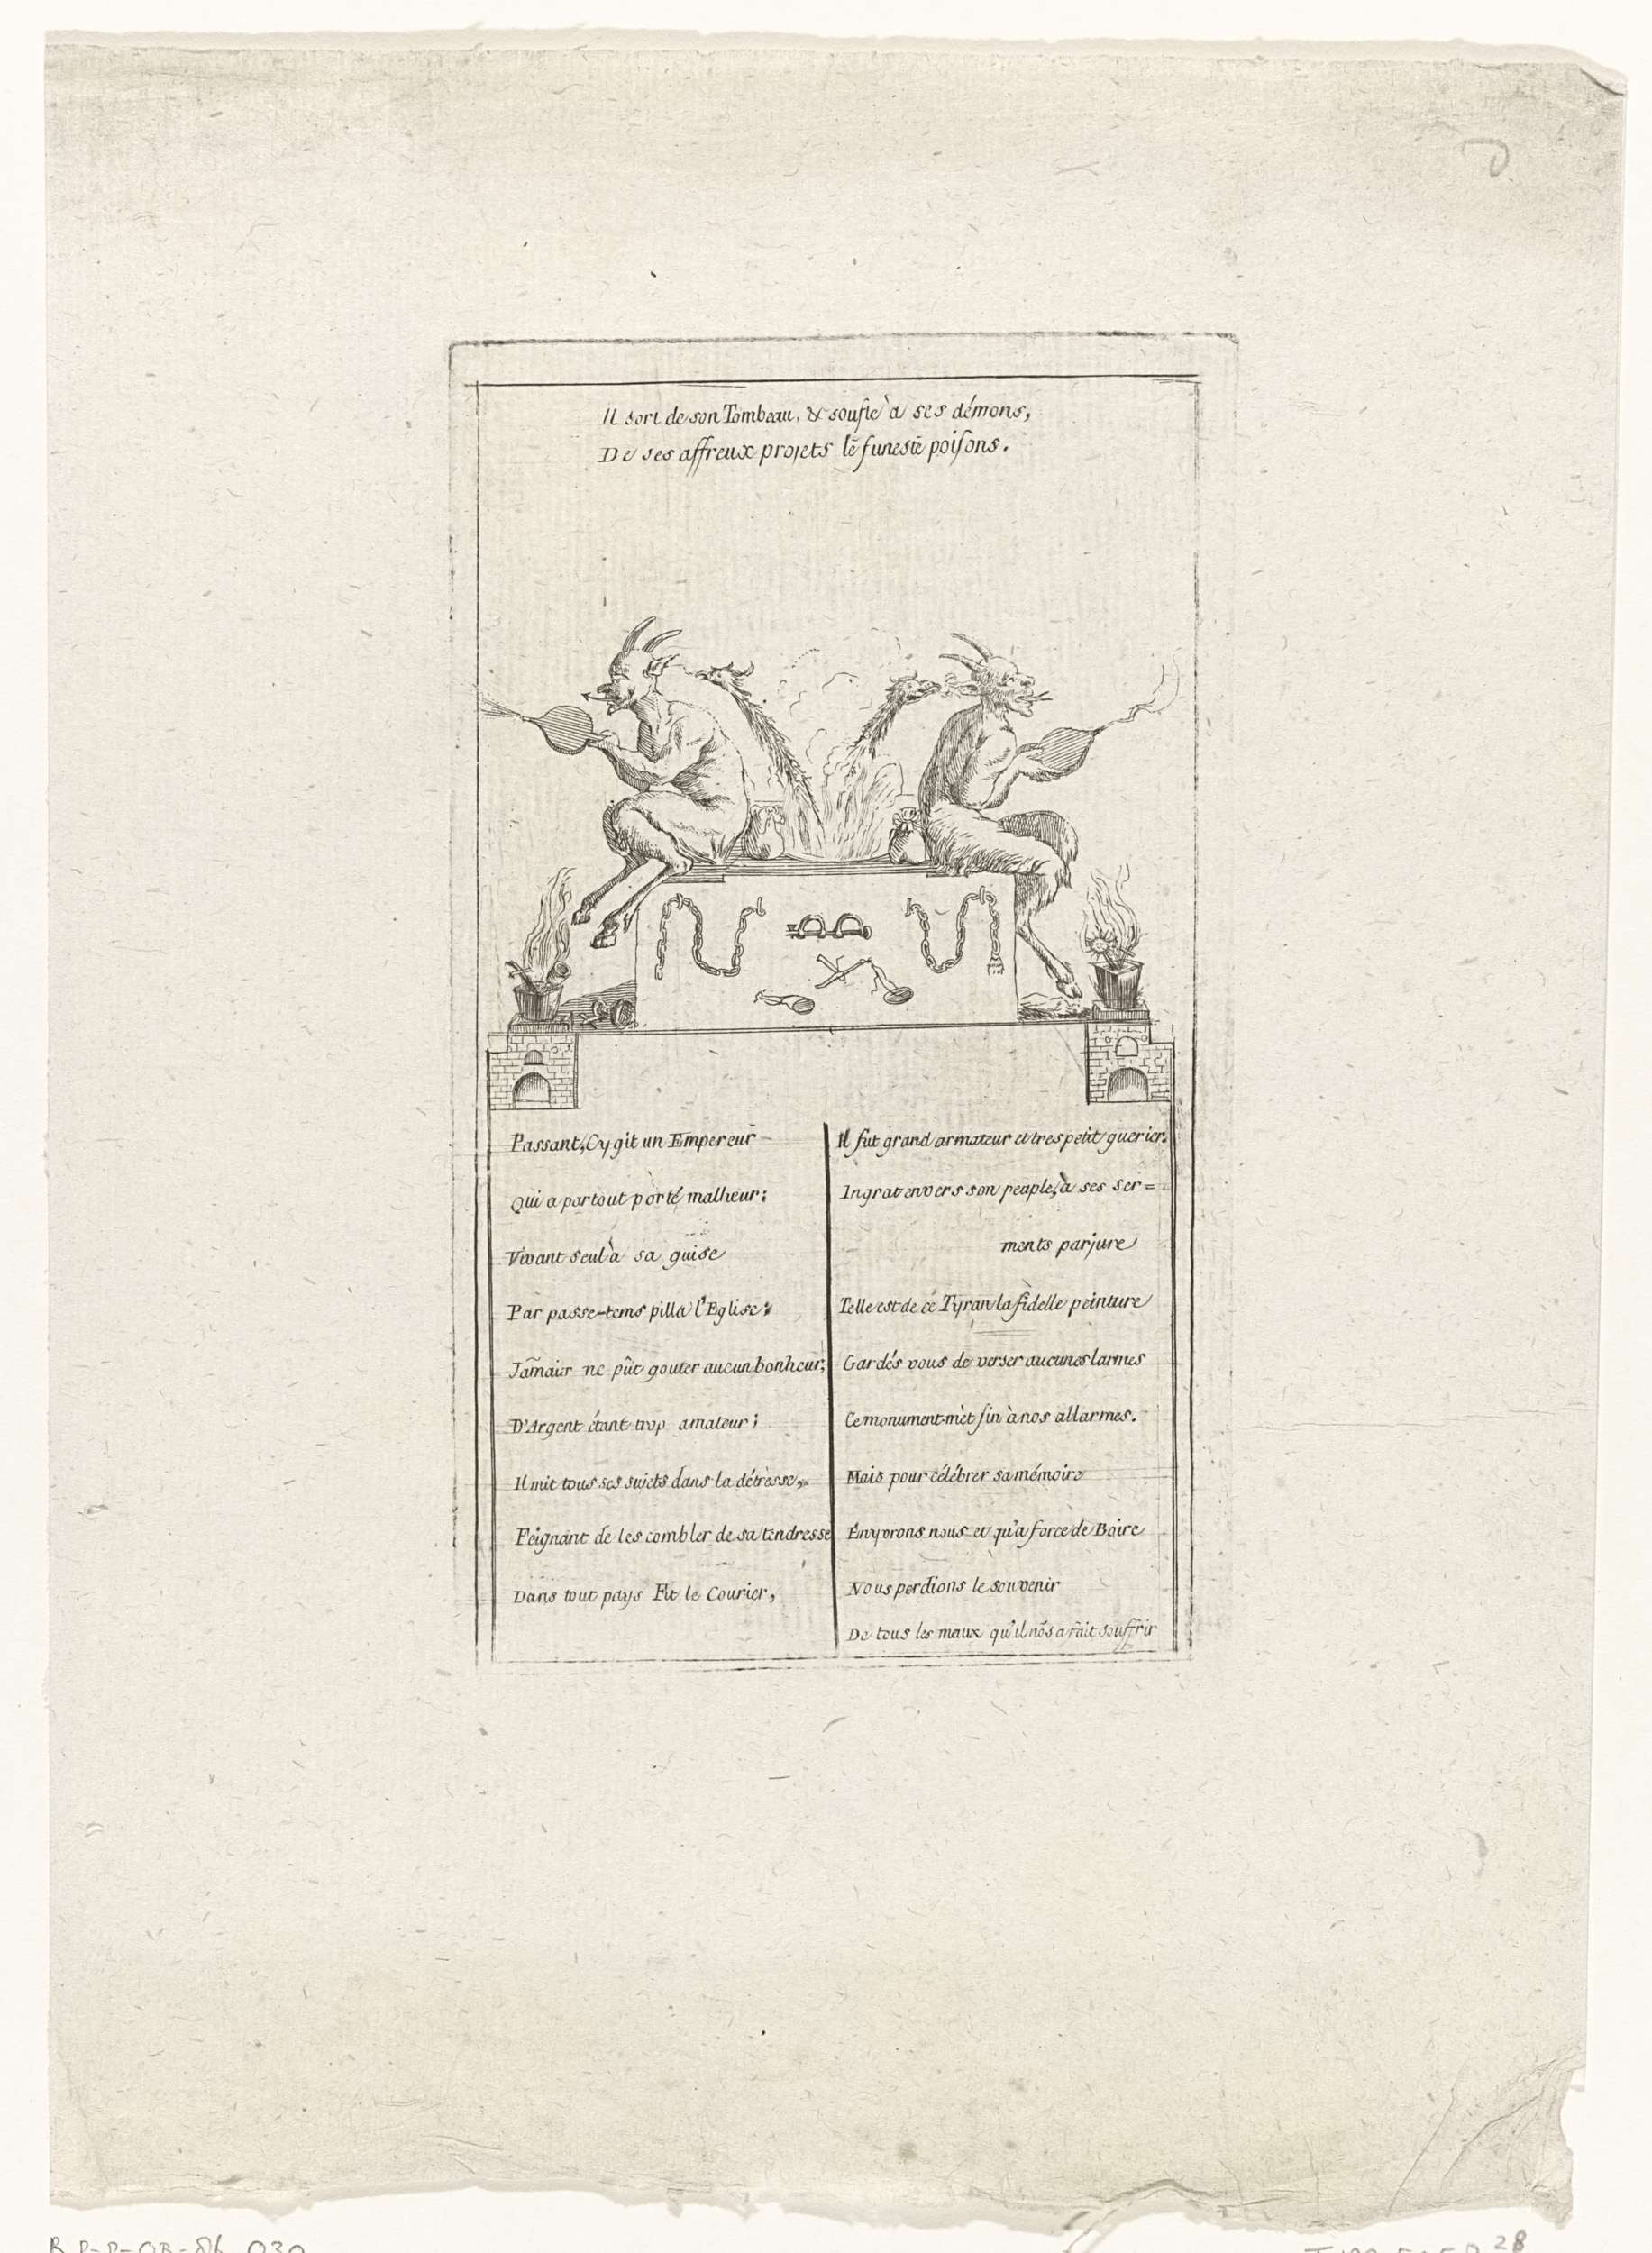 Il sort de son Tombeau, & soufle à ses démons,
De ses affreux projets le funeste poisons.
Passant, Cy git un Empereur
Qui a partout porté malheur;
Vivant seul à sa guise
Par passe-tems pilla l'Eglise;
Jamais ne pût gouter aucun bonheur;
D'Argent étant trop amateur;
Il mit tous ses sujets dans la détresse,
Feignant de les combler de sa tendresse
Dans tout pays Fit le Courier,
Il fut grand armateur et tres petit guerier.
Ingrat envers son peuple, à ses ser=
ments parjure
Telle est de ce Tyran la fidelle peinture
Gardés vous de verser aucunes larmes
Ce monument mèt fin à nos allarmes.
Mais pour célébrer sa mémoire
Enyvrons nous et qu'a force de Boire
Nous perdions le souvenir
De tous les maux qu'il nos a fait souffrir
28